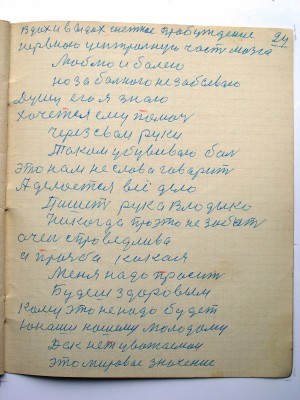 24
Вдох и выдох снежное пробуждение
нервною центральную часть мозга
Люблю и болею
но за больного не забываю
Душу его я знаю
хочется ему помоч
через свои руки
Таким убиваю бол
это нам не слова говорит
А делается всё дело
Пишит рука Владыко
Никогда про это не забыт
очен справедлива
и прозба
Меня надо просит
Будеш здоровым
Кому это не надо будет
Юнаши нашему молодому
Дек нет уважаемой
это мировое значение